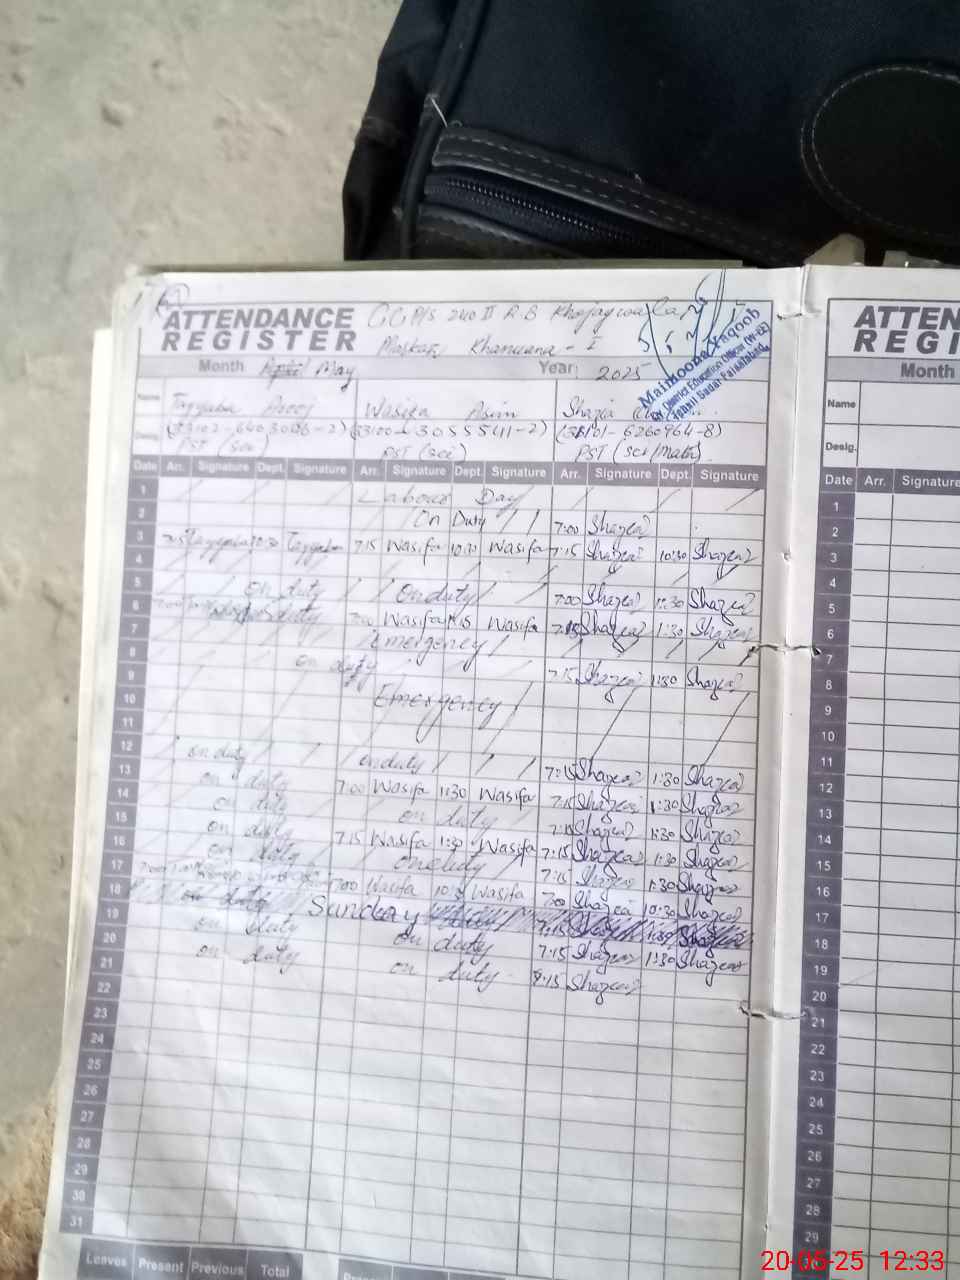 ATTENDANCE REGISTER
GGP/S 240 II R.B
Markaz Khanuana - I
Month May Year: 2025
Maimoona Yaqoob
District Education Officer (W-EE)
Tehsil Sadar Faisalabad
Name Tayyaba Arooj Wasifa Asim Shazia
Desig. (33102-6403086-2) (33100-3055541-2) (33101-6260964-8)
PST (sci) PST (sci) PST (sci/math)
Date Arr. Signature Dept. Signature Arr. Signature Dept. Signature Arr. Signature Dept. Signature
1 Labour Day
2 On Duty 7:00 Shazea
3 7:15 Wasifa 10:30 Wasifa 7:15 Shazea 10:30 Shazea
4
5 on duty on duty 7:00 Shazea 11:30 Shazea
6 duty 7:00 Wasifa Wasifa 7:15 Shazea 1:30 Shazea
7 Emergency
8 on duty 7:15 Shazea 1:30 Shazea
9 Emergency
10
11
12 on duty on duty 7:15 Shazea 1:30 Shazea
13 on duty 7:00 Wasifa 11:30 Wasifa 7:15 Shazea 1:30 Shazea
14 on duty on duty 7:15 Shazea 1:30 Shazea
15 on duty 7:15 Wasifa 1:30 Wasifa 7:15 Shazea 1:30 Shazea
16 on duty on duty 7:15 Shazea 1:30 Shazea
17 7:00 Wasifa Wasifa 7:00 Shazea 10:30 Shazea
18 Sunday
19 on duty on duty 7:15 Shazea 1:30 Shazea
20 on duty on duty 7:15 Shazea
21
22
23
24
25
26
27
28
29
30
31
Leaves Present Previous Total
ATTEN
REGI
Month
Name
Desig.
Date Arr. Signature
1
2
3
4
5
6
7
8
9
10
11
12
13
14
15
16
17
18
19
20
21
22
23
24
25
26
27
28
29
20-05-25 12:33